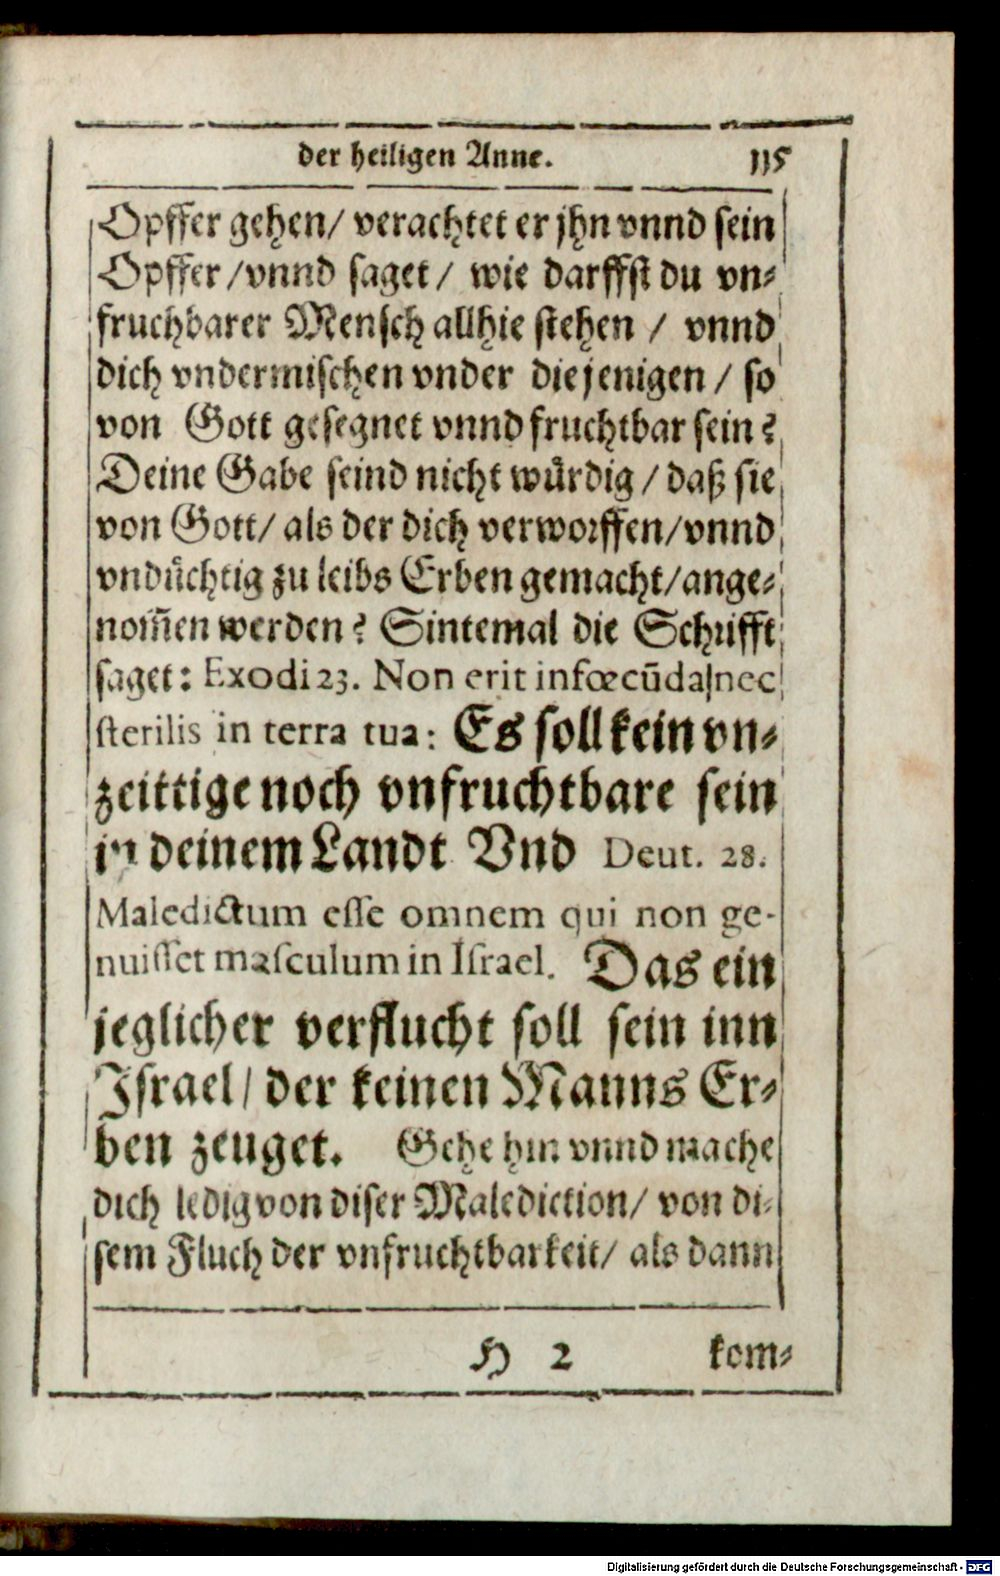 der heiligen Anne. 115
Opffer gehen/ verachtet er jhn vnnd sein
Opffer/vnnd saget/ wie darffst du vn-
fruchbarer Mensch allhie stehen / vnnd
dich vndermischen vnder diejenigen / so
von Gott gesegnet vnnd fruchtbar sein?
Deine Gabe seind nicht würdig / daß sie
von Gott/ als der dich verworffen/vnnd
vndüchtig zu leibs Erben gemacht/ange-
nom̃en werden? Sintemal die Schrifft
saget: Exodi 23. Non erit infœcũda/nec
sterilis in terra tua: Es soll kein vn-
zeittige noch vnfruchtbare sein
in deinem Landt Vnd Deut. 28.
Maledictum esse omnem qui non ge-
nuisset masculum in Israel. Das ein
jeglicher verflucht soll sein inn
Israel/ der keinen Manns Er-
ben zeuget. Gehe hin vnnd mache
dich ledig von diser Malediction/ von di-
sem Fluch der vnfruchtbarkeit/ als dann
H 2 kom-
Digitalisierung gefördert durch die Deutsche Forschungsgemeinschaft - DFG